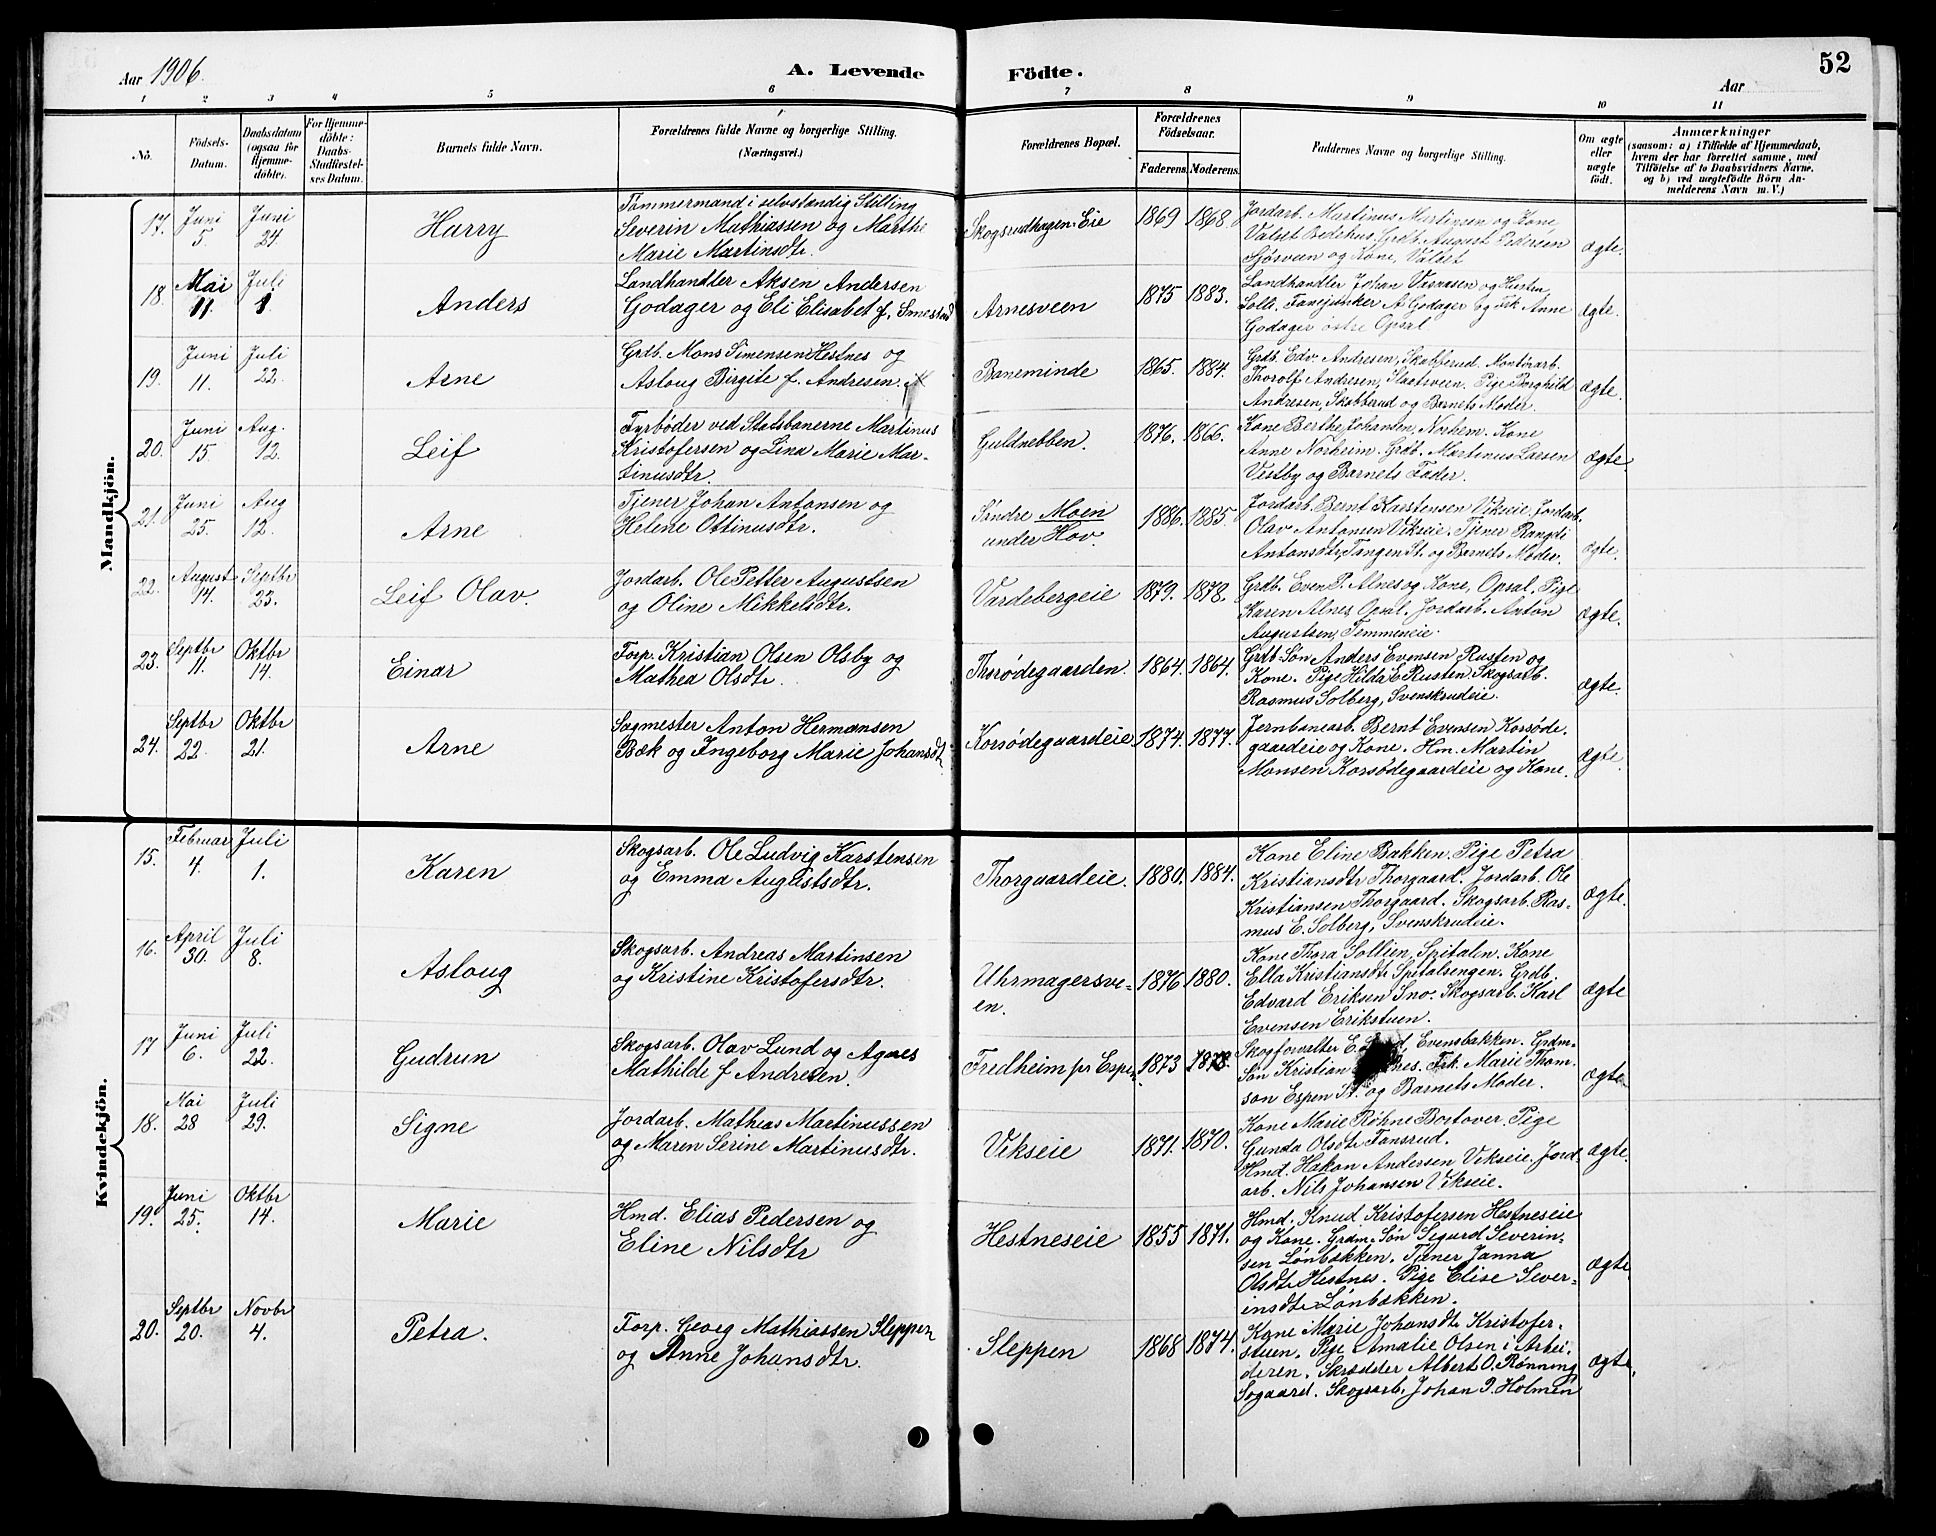 Aar 1906.
A. Levende Födte.
Aar
52
1 2 3 4 5 6 7 8 9 10 11
No.
Födsels-Datum.
Daabsdatum (ogsaa for Hjemme-döbte).
For Hjemme-döbte: Daabs-Stadfæstel-ses Datum.
Barnets fulde Navn.
Forældrenes fulde Navne og borgerlige Stilling.
(Næringsvei.)
Forældrenes Bopæl.
Forældrenes Födselsaar.
Faderens. Moderens.
Faddernes Navne og borgerlige Stilling.
Om ægte eller uægte födt.
Anmærkninger
(saasom: a) i Tilfælde af Hjemmedaab,
hvem der har forrettet samme, med
Tilföielse af to Daabsvidners Navne,
og b) ved uægtefödte Börn An-
melderens Navn m. V.)
Mandkjön.
17. Juni 5. Juni 24
Harry
Tømmermand i selvstændig Stilling
Severin Mathiassen og Marthe
Marie Martinsdtr.
Skogsrudhagen Eie
1869 1868
Jordarb. Martinus Martinsen og Kone
Valset Bedehus. Grdb. August Pedersen
Sjøsveen og Kone, Valset
ægte.
18. Mai 11. Juli 1
Anders
Landhandler Aksen Andersen
Godager og Eli Elisabet f. Smestad
Arnesveen
1875 1883.
Landhandler Johan
Godager østre Opsal
ægte.
19. Juni 11. Juli 22.
Arne
Grdb. Mons Simensen Hestnes og
Asloug Birgite f. Andresen.
Baneminde
1865. 1884.
Grdb. Edv. Andresen, Skabberud. Montørarb.
Thorolf Andresen, Slaatsveen. Pige Borghild
Andresen, Skabberud og Barnets Moder.
ægte.
20. Juni 15. Aug. 12.
Leif
Fyrbøder ved Statsbanerne Martinus
Kristofersen og Lina Marie Mar-
tinusdtr.
Guldnebben.
1876. 1866.
Kone Berthe Johansen, Norhem. Kone
Anne Norheim. Grdb. Martinus Larsen
Vestby og Barnets Fader.
ægte.
21. Juni 25. Aug 12.
Arne
Tjener Johan Antonsen og
Helene Ottinusdtr.
Søndre Moen
under Hov.
1886. 1885.
Jordarb. Bernt Karstensen Vikseie. Jordarb.
Olav Antonsen Vikseie. Tjener Rangdi
Antonsdtr, Tangen St. og Barnets Moder.
ægte.
22. August 14. Septbr 23.
Leif Olav.
Jordarb. Ole Petter Augustsen
og Oline Mikkelsdtr.
Vardebergeie
1879. 1878.
Grdb. Even P. Alnes og Kone, Opsal. Pige
Karen Alnes, Opsal. Jordarb. Anton
Augustsen, Temmeneie.
ægte.
23. Septbr 11. Oktbr 14.
Einar
Forp. Kristian Olsen Olsby og
Mathea Olsdtr.
Thorødegaarden.
1864. 1864.
Grdb-Søn Anders Evensen Rusten og
Kone. Pige Hilda E. Rusten. Skogsarb.
Rasmus Solberg, Svenskrudeie.
ægte.
24. Septbr 22. Oktbr 21.
Arne
Sagmester Anton Hermansen
Bæk og Ingeborg Marie Johansdtr
Korsødegaardeie
1874. 1877.
Jernbanearb. Bernt Evensen Korsøde-
gaardeie og Kone. Hm. Martin
Monsen Korsødegaardeie og Kone.
ægte.
Kvindekjön.
15. Februar 4. Juli 1.
Karen
Skogsarb. Ole Ludvig Karstensen
og Emma Augustsdtr.
Thorgaardeie.
1880. 1884.
Kone Eline Bakken. Pige Petra
Kristiansdtr Thorgaard. Jordarb. Ole
Kristiansen Thorgaard. Skogsarb. Ras-
mus E. Solberg, Svenskrudeie.
ægte.
16. April 30. Juli 8.
Asloug
Skogsarb. Andreas Martinsen
og Kristine Kristofersdtr.
Uhrmagersve-
en.
1876 1880.
Kone Thora Sollien, Spitalen. Kone
Ella Kristiansdtr Spitalsengen. Grdb.
Edvard Eriksen Sno. Skogsarb. Karl
Evensen Erikstuen.
ægte
17 Juni 6. Juli 22.
Gudrun
Skogsarb. Olav Lund og Agnes
Mathilde f Andresen.
Fredheim pr Espen.
1873 1878.
Skogforvalter E. Evensbakken. Grdm-
Søn Kristian Frk. Marie Thom-
son Espen St. og Barnets Moder.
ægte
18. Mai 28 Juli 29.
Signe
Jordarb. Mathias Martinussen
og Maren Serine Martinusdtr.
Vikseie
1871. 1870.
Kone Marie Røhne Bortover. Pige
Gunda Olsdtr Fonsrud.
Hmd. Hakon Andersen Vikseie. Jord-
arb. Nils Johansen Vikseie.
ægte.
19. Juni 25. Oktbr 14.
Marie
Hmd. Elias Pedersen og
Eline Nilsdtr
Hestneseie
1855 1871.
Hmd. Knud Kristofersen Hestneseie
og Kone. Grdm-Søn Sigurd Severin-
sen Lønbækken. Tjener Janna
Olsdtr Hestnes. Pige Elise Sever-
insdtr Lønbækken.
ægte
20. Septbr 20. Novbr 4.
Petra.
Forp. Georg Mathiassen Sleppen
og Anne Johansdtr.
Sleppen
1868 1874.
Kone Marie Johansdtr Kristofer-
stuen. Pige Amalie Olsen i Arbei-
deren. Skrædder Albert O. Rønning
Søgaard. Skogsarb. Johan P. Holmen
ægte.